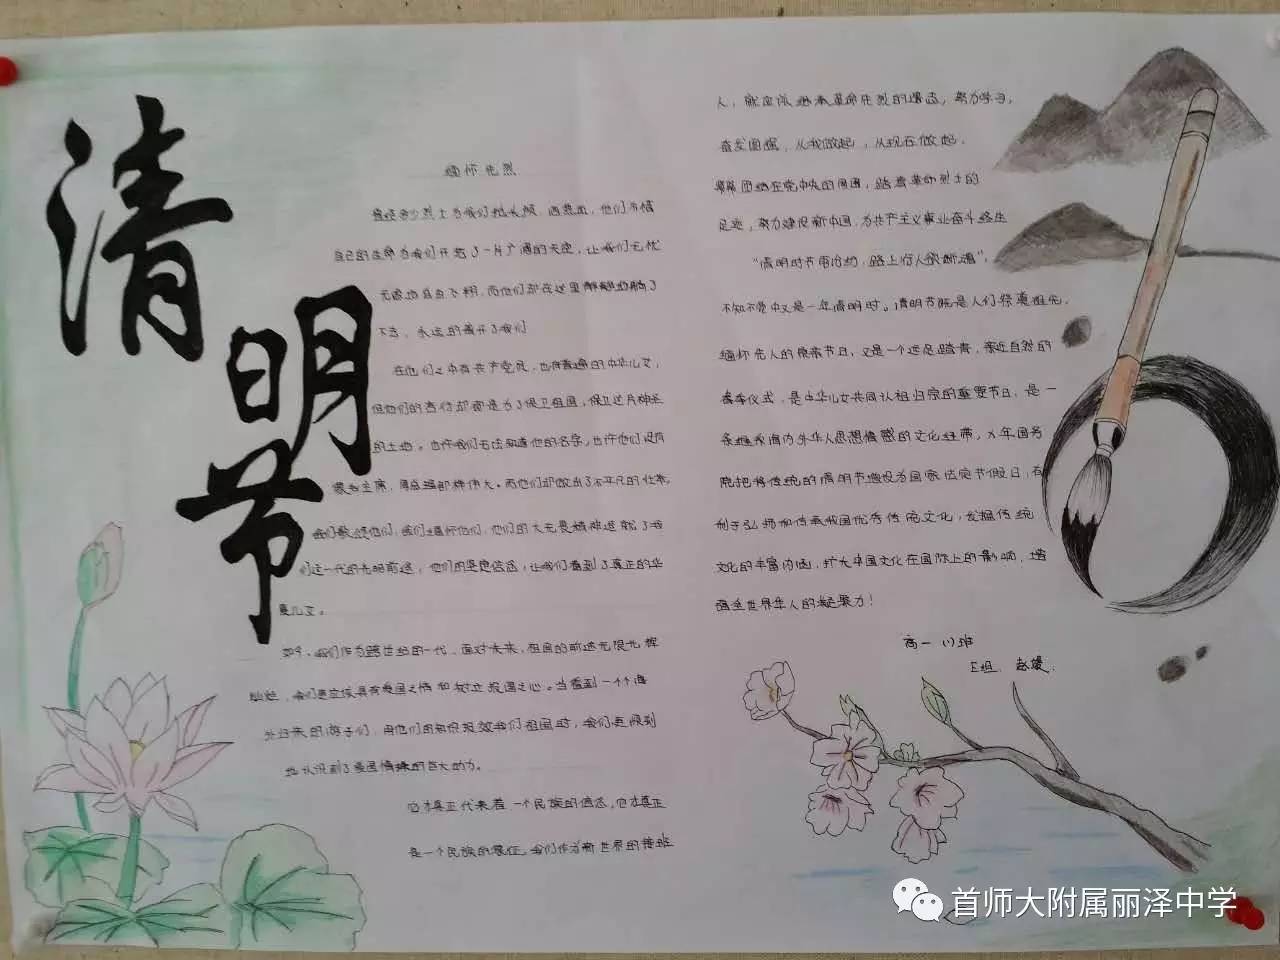 清明节
缅怀先烈
曾经多少烈士为我们抛头颅，洒热血，他们不惜
自己的生命为我们开创了一片广阔的天空，让我们无忧
无虑地自由飞翔，而他们却在这里静静地躺了
下去，永远的离开了我们
在他们之中有共产党员，也有普通的中华儿女，
但他们的责任却都是为了保卫祖国，保卫这片神圣
的土地。也许我们无法知道他的名字，也许他们没有
像毛主席，周总理那样伟大。而他们却做出了不平凡的壮举，
我们歌颂他们，我们缅怀他们，他们的大无畏精神造就了我
们这一代的光明前途，他们的坚定信念，让我们看到了真正的华
夏儿女。
如今，我们作为跨世纪的一代，面对未来，祖国的前途无限光辉
灿烂，我们更应该具有爱国之情和树立报国之心。当看到一个个海
外归来的游子们，用他们的知识报效我们祖国时，我们更深刻
地认识到了爱国情操的巨大动力。
它才真正代表着一个民族的信念，它才真正
是一个民族的象征。我们作为新世界的接班
人，就应该继承革命先烈的遗志，努力学习，
奋发图强，从我做起，从现在做起，
紧紧团结在党中央的周围，踏着革命烈士的
足迹，努力建设新中国，为共产主义事业奋斗终生
“清明时节雨纷纷，路上行人欲断魂”，
不知不觉中又是一年清明时。清明节既是人们祭奠祖先，
缅怀先人的节日，又是一个远足踏青，亲近自然的
春季仪式，是中华儿女共同认祖归宗的重要节日，是一
条维系海内外华人思想情感的文化纽带，今年国务
院把将传统的清明节增设为国家法定节假日，有
利于弘扬和传承我国优秀传统文化，发掘传统
文化的丰富内涵，扩大中国文化在国际上的影响，增
强全世界华人的凝聚力！
高一（1）班
王坦 赵媛
首师大附属丽泽中学